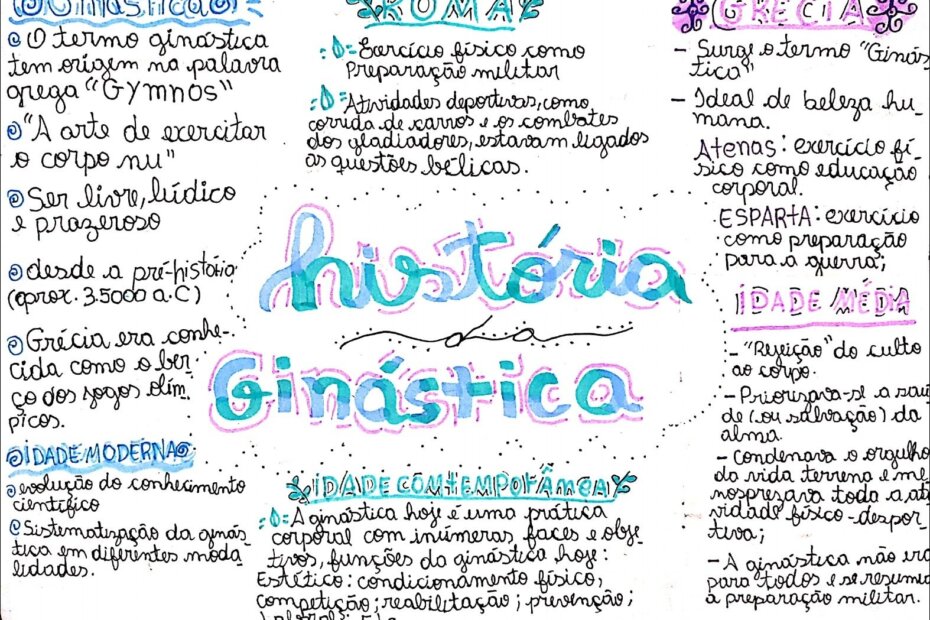 Ginástica
O termo ginástica
tem origem na palavra
grega "GYMNOS"
"A arte de exercitar
o corpo nu"
Ser livre, lúdico
e prazeroso
desde a pré-história
(aprox. 3.5000 a.C)
Grécia era conhe-
cida como o ber-
ço dos jogos olím
picos.
IDADE MODERNA
evolução do conhecimento
científico
Sistematização da ginás-
tica em diferentes moda-
lidades.
ROMA
Exercício físico como
Preparação militar
Atividades deportivas, como
corrida de carros e os combates
dos gladiadores, estavam ligados
as questões bélicas.
história
da
Ginástica
IDADE CONTEMPORÂNEA
A ginástica hoje é uma prática
corporal com inúmeras faces e obje
tivos, funções da ginástica hoje:
Estético: condicionamento físico,
competição; reabilitação; prevenção;
GRÉCIA
- Surge o termo "Ginás
tica"
- Ideal de beleza hu-
mana.
Atenas: exercício fí-
sico como educação
corporal.
ESPARTA: exercício
como preparação
para a guerra;
IDADE MÉDIA
- "Rejeição" do culto
ao corpo.
- Priorizava-se a saú
de (ou salvação) da
alma.
- Condenava o orgulho
da vida terrena e me
nosprezava toda a ati
vidade físico-despor-
tiva;
- A ginástica não era
para todos e se resumia
à preparação militar.